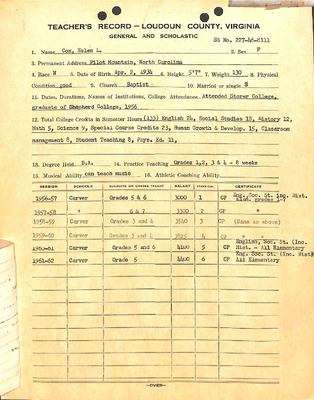 TEACHER'S RECORD — LOUDOUN COUNTY, VIRGINIA
GENERAL AND SCHOLASTIC
SS No. 227-46-8111
1. Name Cox, Helen L. 2. Sex F
3. Permanent Address Pilot Mountain, North Carolina
4. Race N 5. Date of Birth Apr. 2, 1934 6. Height 5'7" 7. Weight 130 8. Physical
Condition good 9. Church Baptist 10. Married or single S
11. Dates, Durations, Names of Institutions, College Attendance. Attended Storer College,
graduate of Shepherd College, 1956
12. Total College Credits in Semester Hours (133) English 24, Social Studies 18, History 12,
Math 5, Science 9, Special Course Credits 23, Human Growth & Develop. 15, Classroom
management 8, Student Teaching 8, Phys. Ed. 11,
13. Degree Held B.A. 14. Practice Teaching Grades 1,2, 3 & 4 - 8 weeks
15. Musical Ability can teach music 16. Athletic Coaching Ability
SESSION SCHOOLS SUBJECTS OR GRADES TAUGHT SALARY CERTIFICATE
1956-57 Carver Grades 5 & 6 3000 1 CP Eng. Soc. St. Inc. Hist. Elem. grades 1-7
1957-58 " 6 & 7 3300 2 CP "
1958-59 Carver Grades 3 and 4 3640 3 CP (Same as above)
1959-60 Carver Grades 3 and 4 4 CP "
1960-61 Carver Grades 5 and 6 4100 5 CP English, Soc. St. (Inc. Hist. - All Elementary
1961-62 Carver Grade 5 4400 6 CP Eng. Soc. St. (Inc. Hist) All Elementary
—OVER—